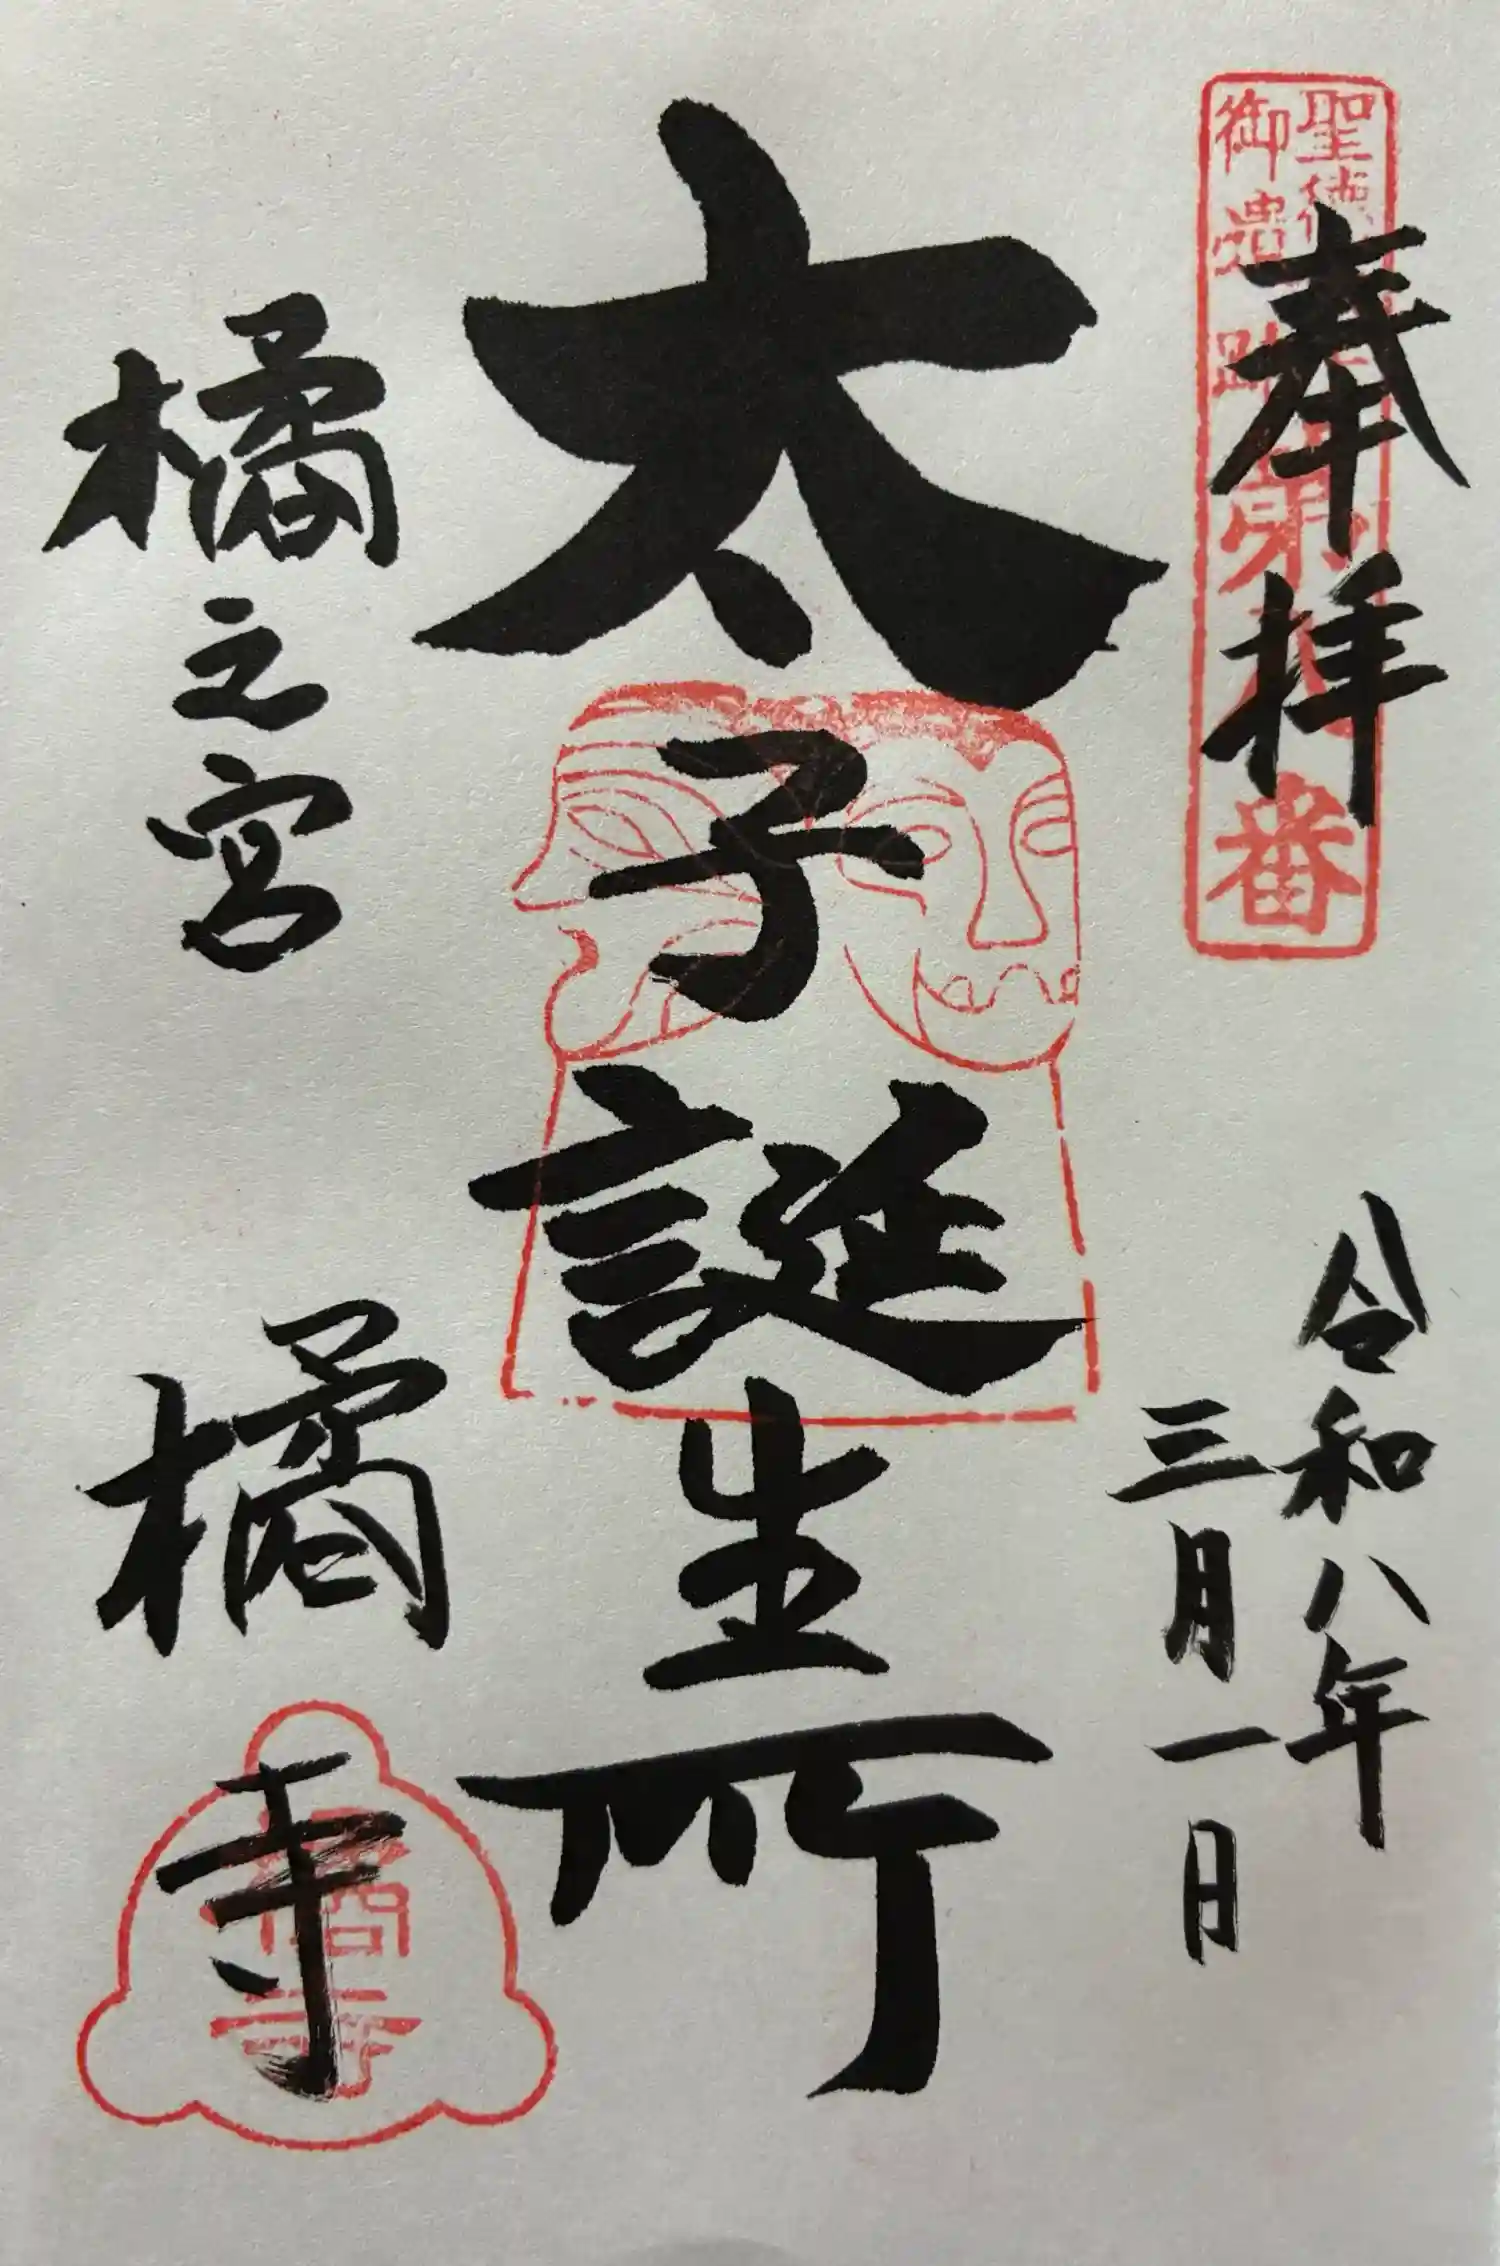 奉拝
令和八年
三月一日
太子誕生所
橘之宮
橘寺
聖徳
御遺跡第
番
橘寺